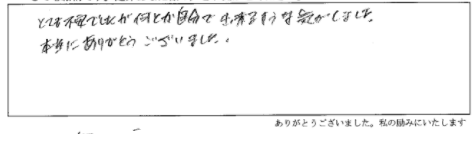 とても不安でしたが何とか自分で出来るような気がしました。
本当にありがとうございました。
ありがとうございました。私の励みにいたします